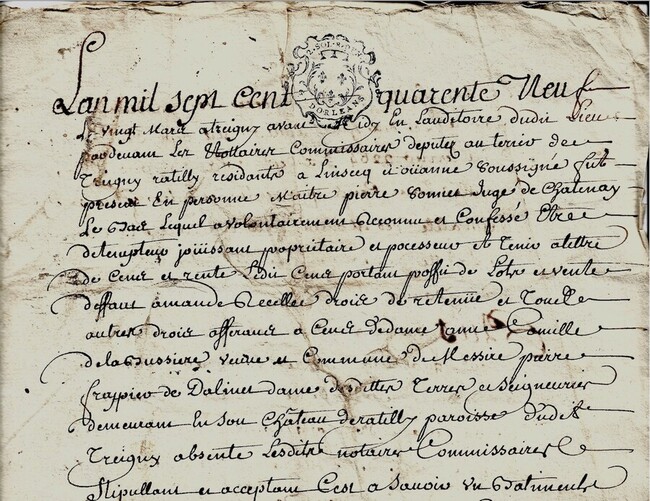 2. SOLS. 8. DEN
D'ORLEANS
Lan mil sept Cent quarente Neuf
le vingt Mars a treigny avant Midy En Lauditoire dudit Lieu
pardevant Les Nottaires Commissaires deputez au terrier de
Treigny ratilly residants a Linsecq et oüanne Soussigné fut
present En personne Maitre pierre Bonnet Juge de Chatenay
Le Bas Lequel a volontairement Reconnu et Confessé Etre
detempteur joüissant propritaire et pocesseur et Tenir a tittre
de Cens et rente Ledit Cens portant proffit de Lots et vente
deffaut amande Recellée droit de retenüe et Tous
autres droit afferant a Cens de dame anne Camille
de la Bussiere veuve et Commune de Messire pierre
frappier de Dalinet dame desdittes Terres et Seigneuries
demeurant En son Château de ratilly paroisse dudit
Treigny absente Lesdits notaires Commissaires
Stipullant et acceptant C'est a savoir un Batiment